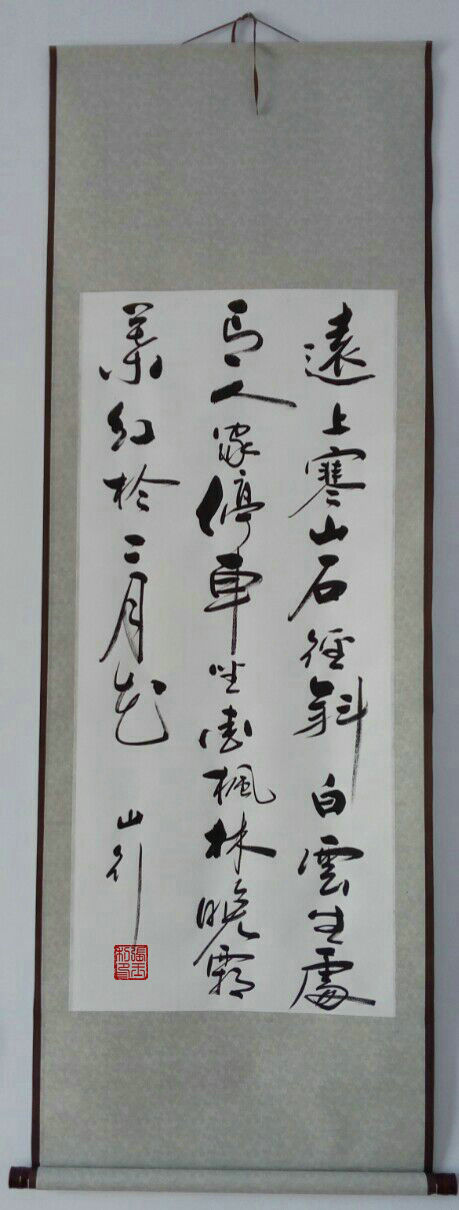 遠上寒山石徑斜白雲生處
有人家停車坐愛楓林晚霜
葉紅於二月花
山行